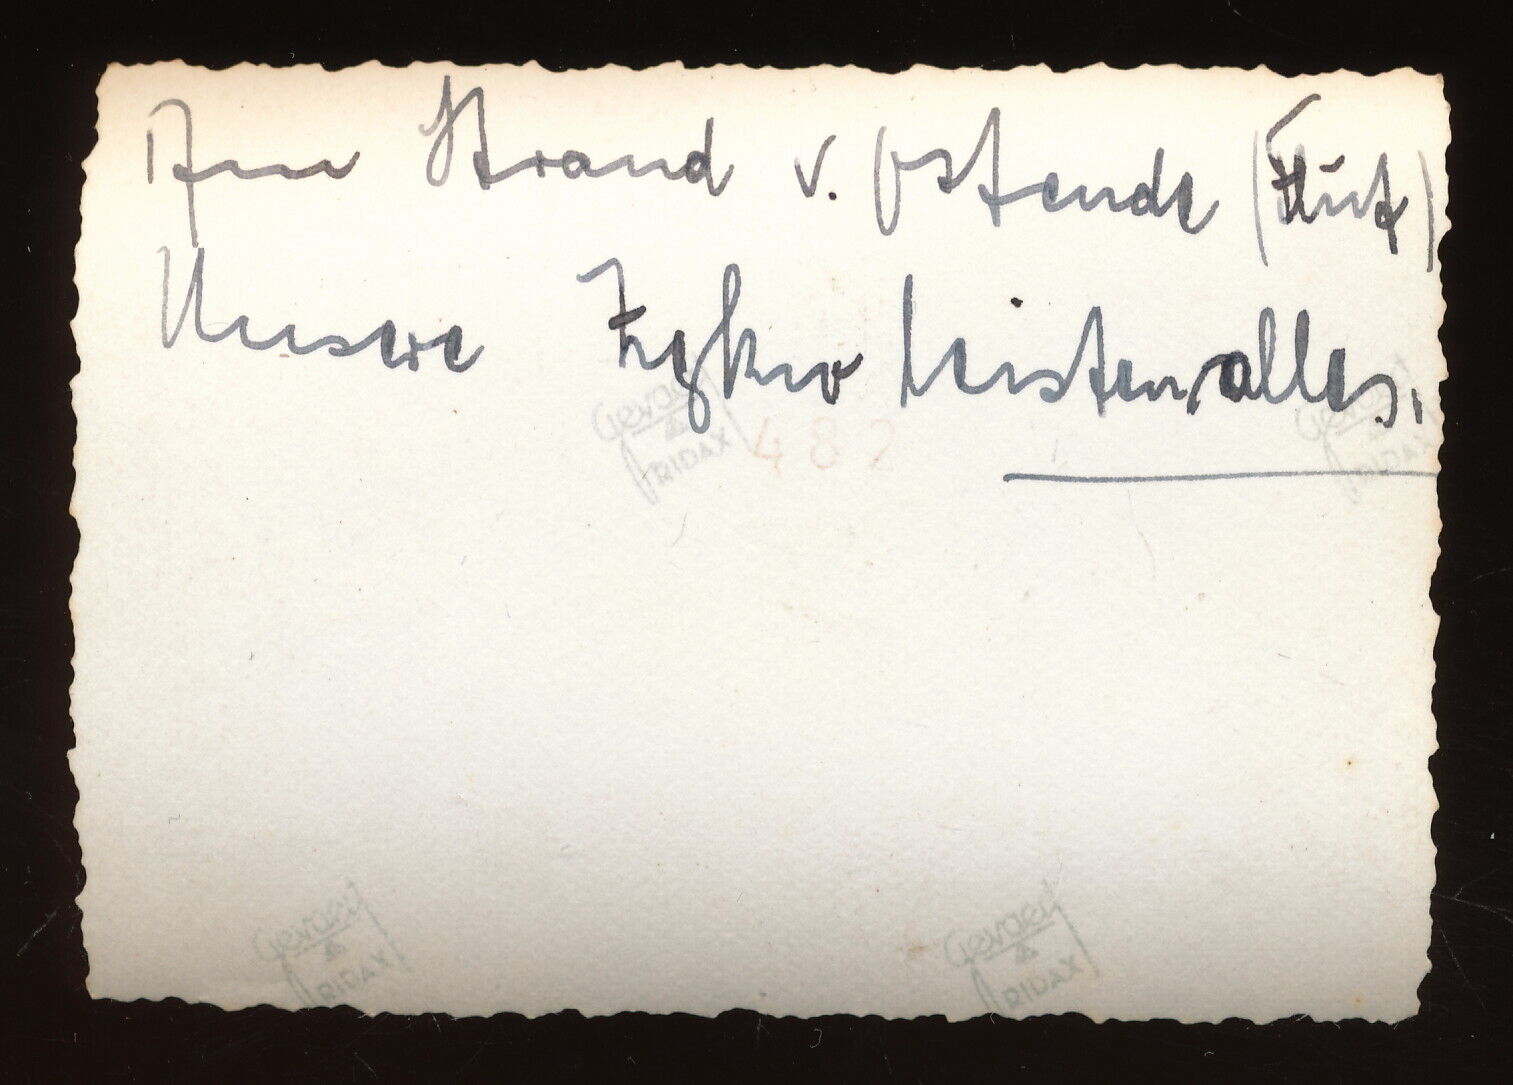 Am Strand v. Ostende (Flut)
Unsere Zgkw leisten alles.
Gevaert
RIDAX
482
Gevaert
RIDAX
Gevaert
RIDAX
Gevaert
RIDAX